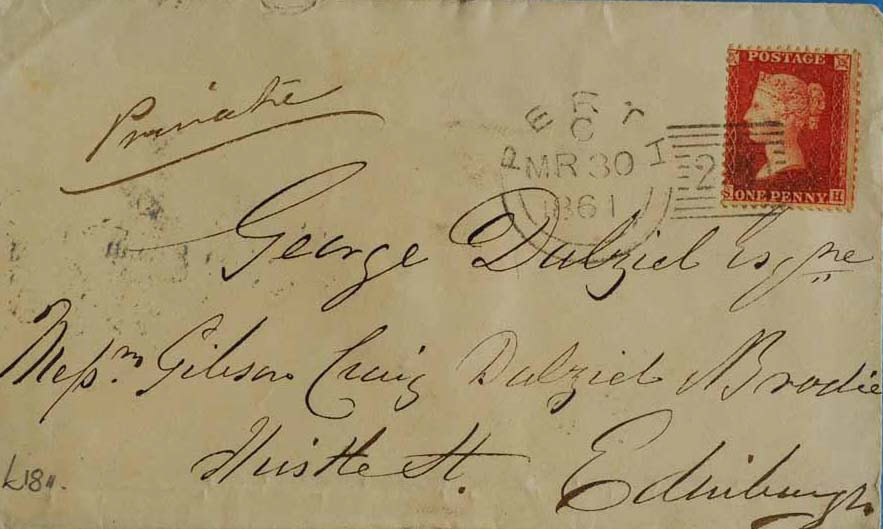 Private
POSTAGE
ONE PENNY
S H
PERTH
C
MR 30
1861
2
George Dalziel Esqre
Messrs Gibson Craig Dalziel & Brodie
Thistle St. Edinburgh